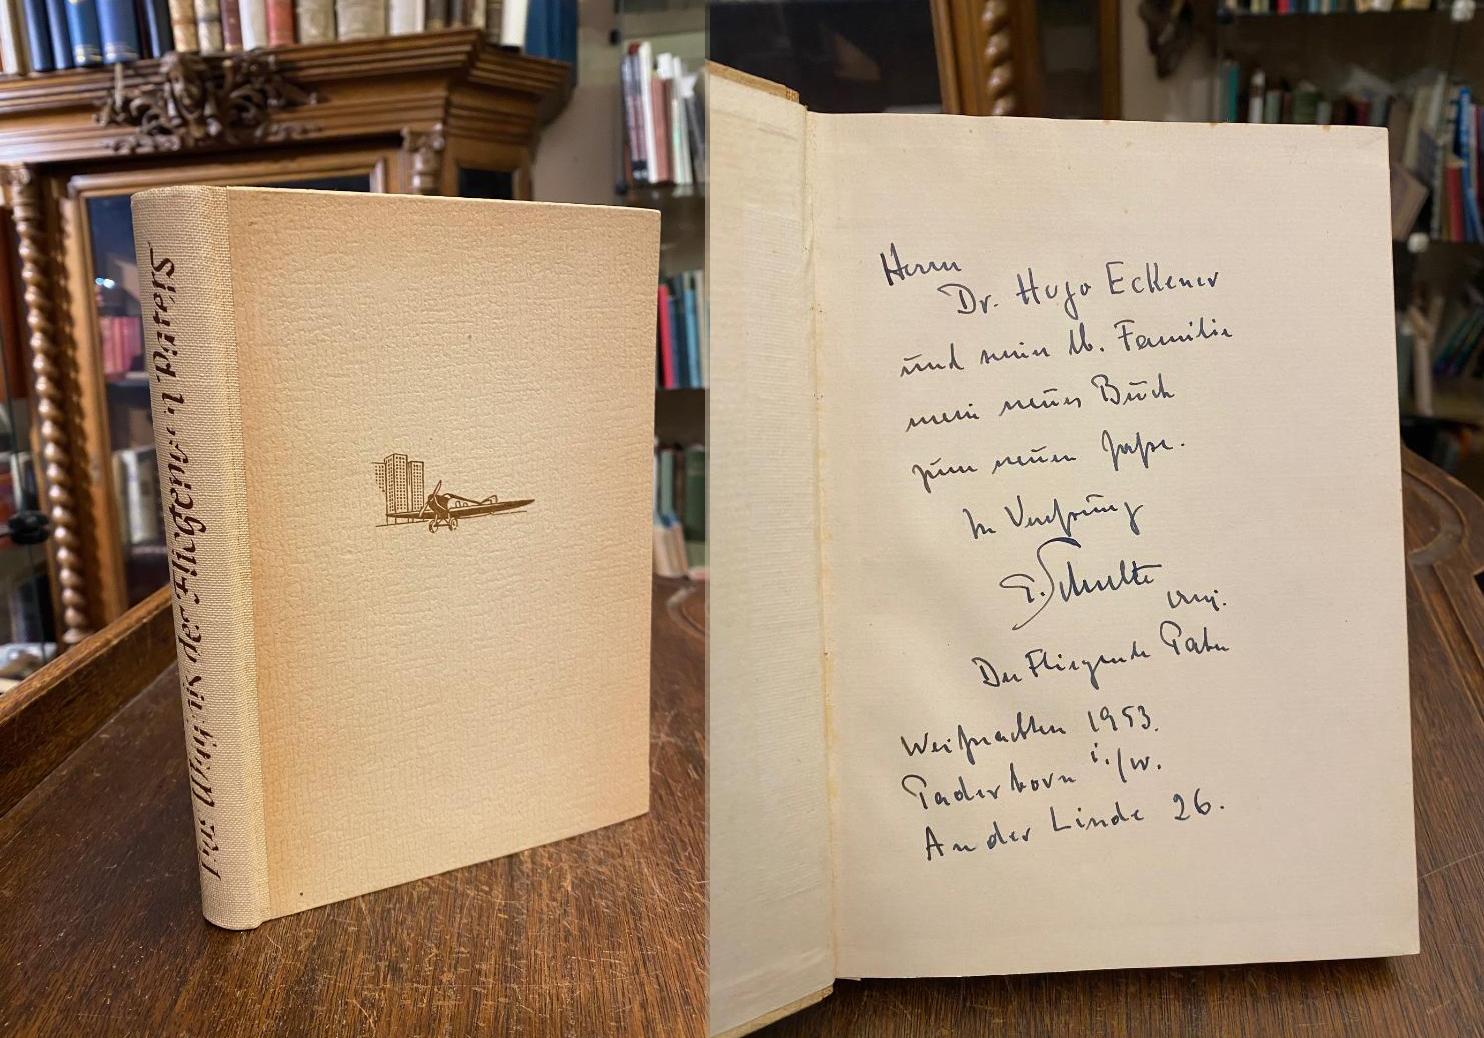 Das Wagnis des Fliegenden Paters
Herrn
Dr. Hugo Eckener
und sein lb. Familie
mein neues Buch
zum neuen Jahre.
In Verehrung
P. Schulte
omi.
Der Fliegende Pater
Weihnachten 1953.
Paderborn i./W.
An der Linde 26.